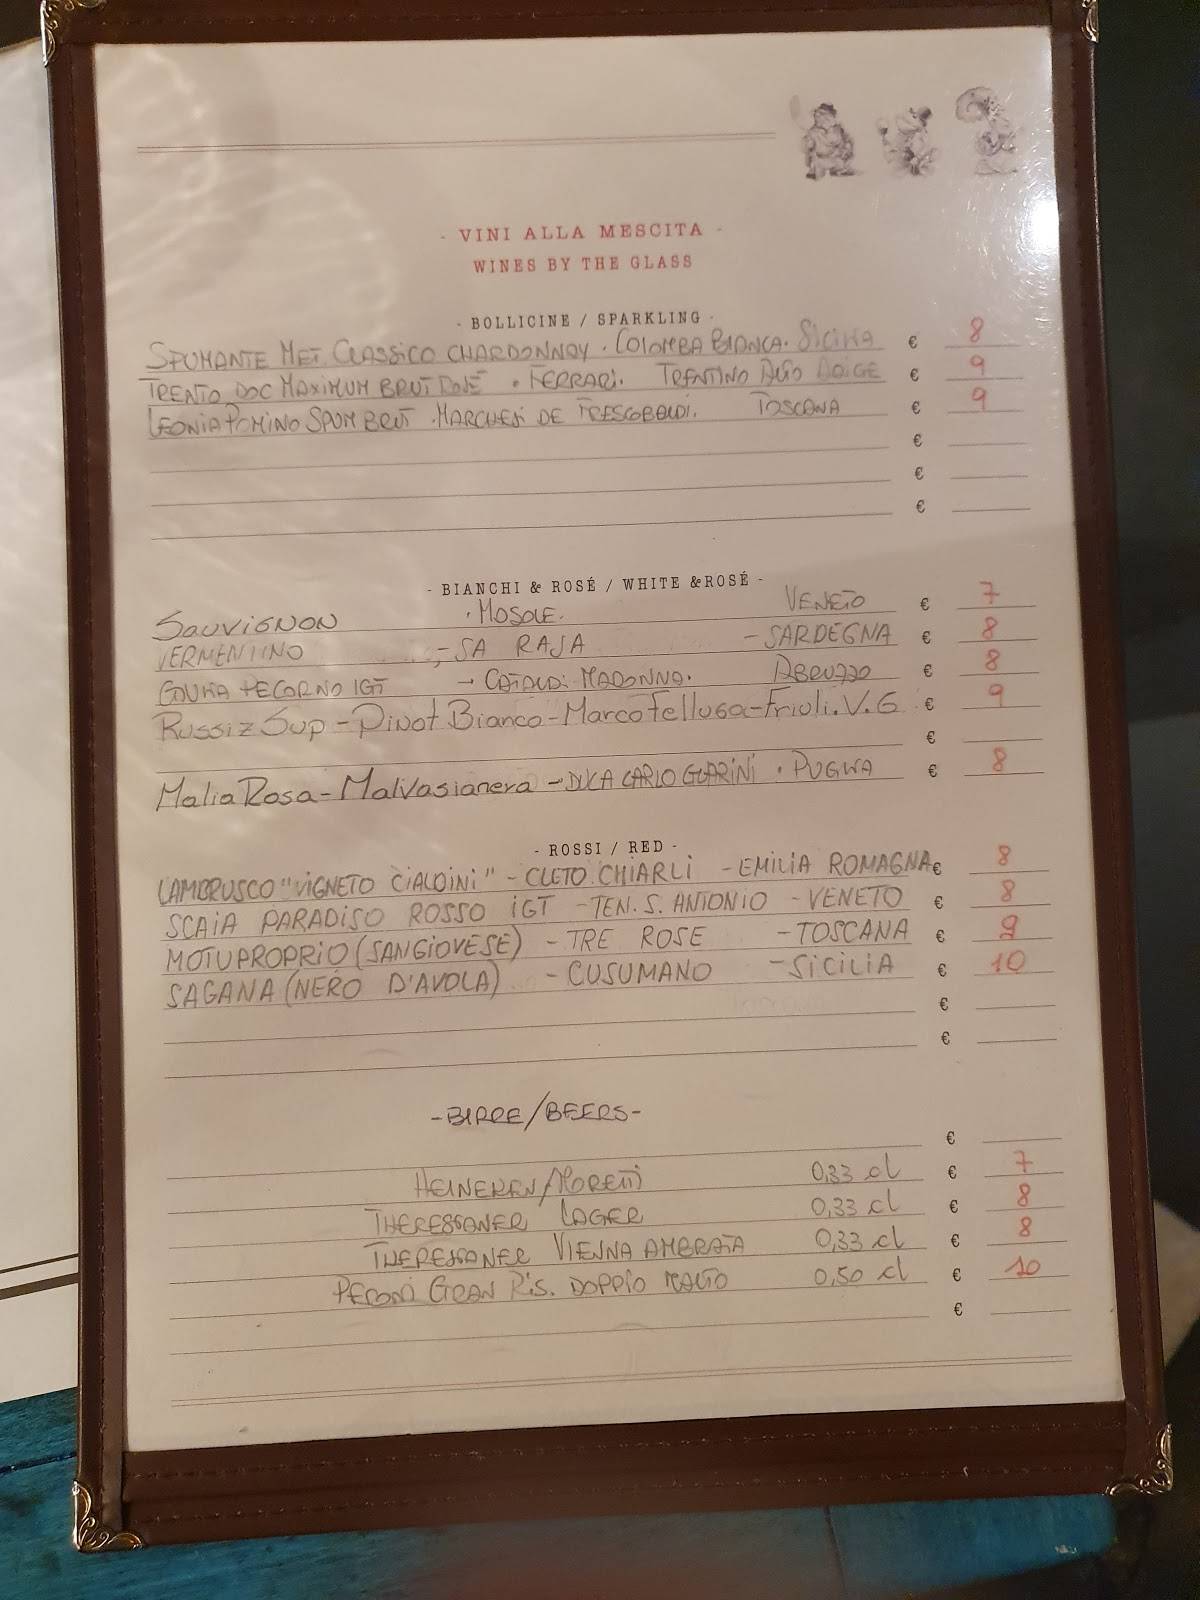 - VINI ALLA MESCITA -
WINES BY THE GLASS
- BOLLICINE / SPARKLING -
SPUMANTE MET. CLASSICO CHARDONNAY · COLOMBA BIANCA · SICILIA € 8
TRENTO DOC MAXIMUM BRUT ROSÉ · FERRARI. TRENTINO ALTO ADIGE € 9
LEONIA POMINO SPUM BRUT · MARCHESI DE FRESCOBALDI. TOSCANA € 9
€
€
€
- BIANCHI & ROSÉ / WHITE &ROSÉ -
SAUVIGNON · MOSOLE. VENETO € 7
VERMENTINO - SA RAJA - SARDEGNA € 8
PECORINO IGT - CATALDI MADONNA. ABRUZZO € 8
Russiz Sup - Pinot Bianco - Marco Felluga - Friuli. V. G € 9
€
Malia Rosa - Malvasia nera - DUCA CARLO GUARINI · PUGLIA € 8
- ROSSI / RED -
LAMBRUSCO "VIGNETO CIALDINI" - CLETO CHIARLI - EMILIA ROMAGNA € 8
SCAIA PARADISO ROSSO IGT - TEN. S. ANTONIO - VENETO € 8
MOTUPROPRIO (SANGIOVESE) - TRE ROSE - TOSCANA € 9
SAGANA (NERO D'AVOLA) - CUSUMANO - SICILIA € 10
€
€
- BIRRE/BEERS -
€
HEINEKEN/MORETTI 0,33 cl € 7
THERESIANER LAGER 0,33 cl € 8
THERESIANER VIENNA AMBRATA 0,33 cl € 8
PERONI GRAN RIS. DOPPIO MALTO 0,50 cl € 10
€